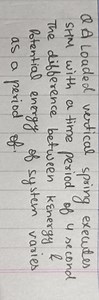 Q A loaded vertical spring executes
SHM with a time period of 4 second
The difference between kenergy &
Potential energy of system varies
as a period of